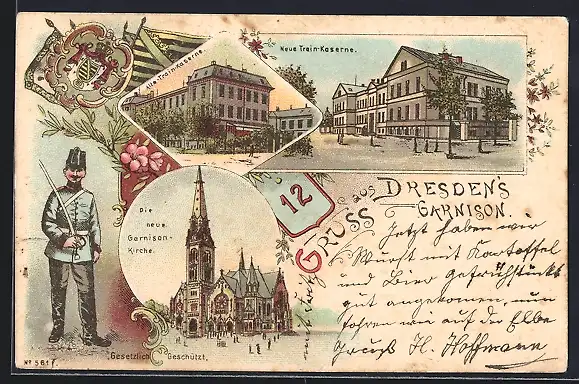 Alte Train-Kaserne.
Neue Train-Kaserne.
Die
neue
Garnison-
Kirche.
12
GRUSS aus DRESDEN'S
GARNISON.
Jetzt haben wir
Wurst mit Kartoffel
und Bier gefrühstückt
gut angekommen, nun
fahren wir auf der Elbe
Gruß H. Hoffmann
Gesetzlich Geschützt.
No 5617.